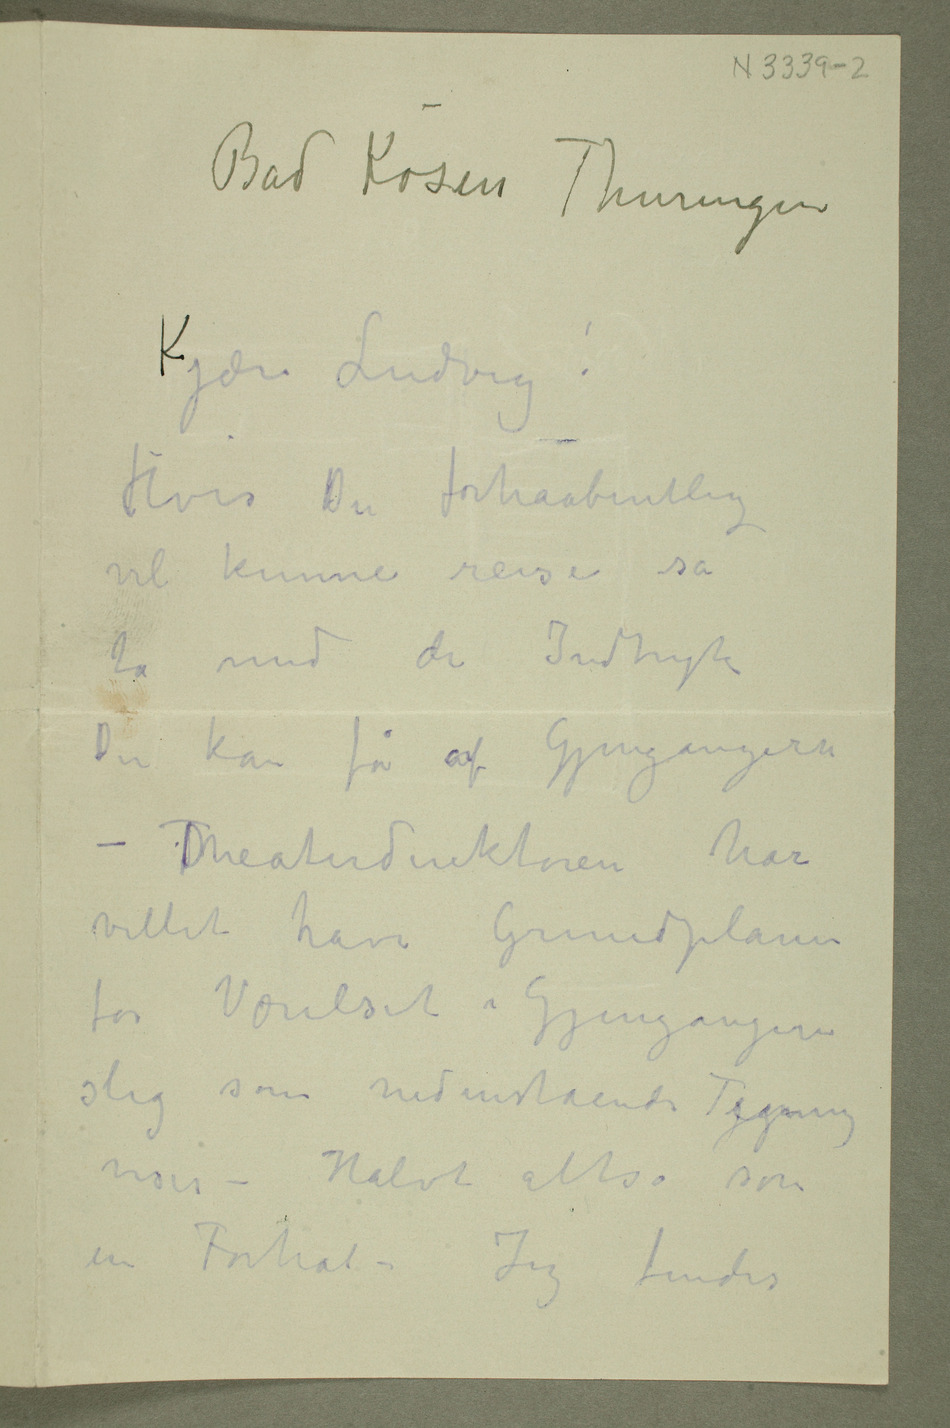 N 3339-2
Bad Kösen Thuringen
Kjære Ludvig!
Hvis Du forhaabentlig
vil kunne reise så
ta med de Indtryk
Du kan få af Gjengangere
– Theaterdirektoren har
villet have Grundplanen
for Værelset i Gjengangere
slig som nedenstaaende Tegning
viser – Halvt altså som
en Forhal – Jeg findes